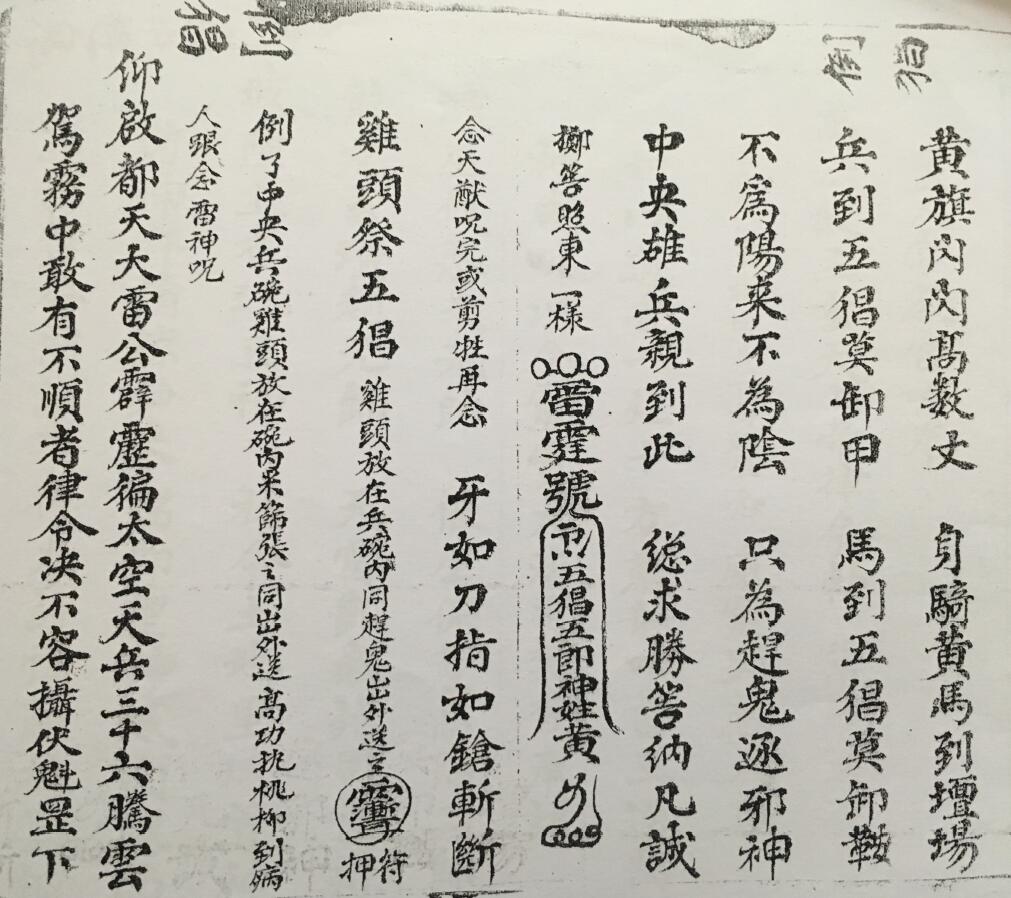 黄旗闪闪髙数丈　身騎黄馬到壇場
兵到五猖莫卸甲　馬到五猖莫卸鞍
不爲陽来不為陰　只為趕鬼逐邪神
中央雄兵親到此　総求勝筶纳凡誠
擲筶照東一様　雷霆號　五猖五郎神姓黄
念天猷呪完或剪牲再念　牙如刀指如鎗斬斷
雞頭祭五猖　雞頭放在兵碗内同趕鬼出外送之　符押
倒了中央兵碗雞頭放在碗内米篩張之同出外送髙功执桃柳到病
人跟念雷神呪
仰啟都天大雷公霹靂徧太空天兵三十六騰雲
駕霧中敢有不順者律令决不容攝伏魁罡下
倒猖
倒猖